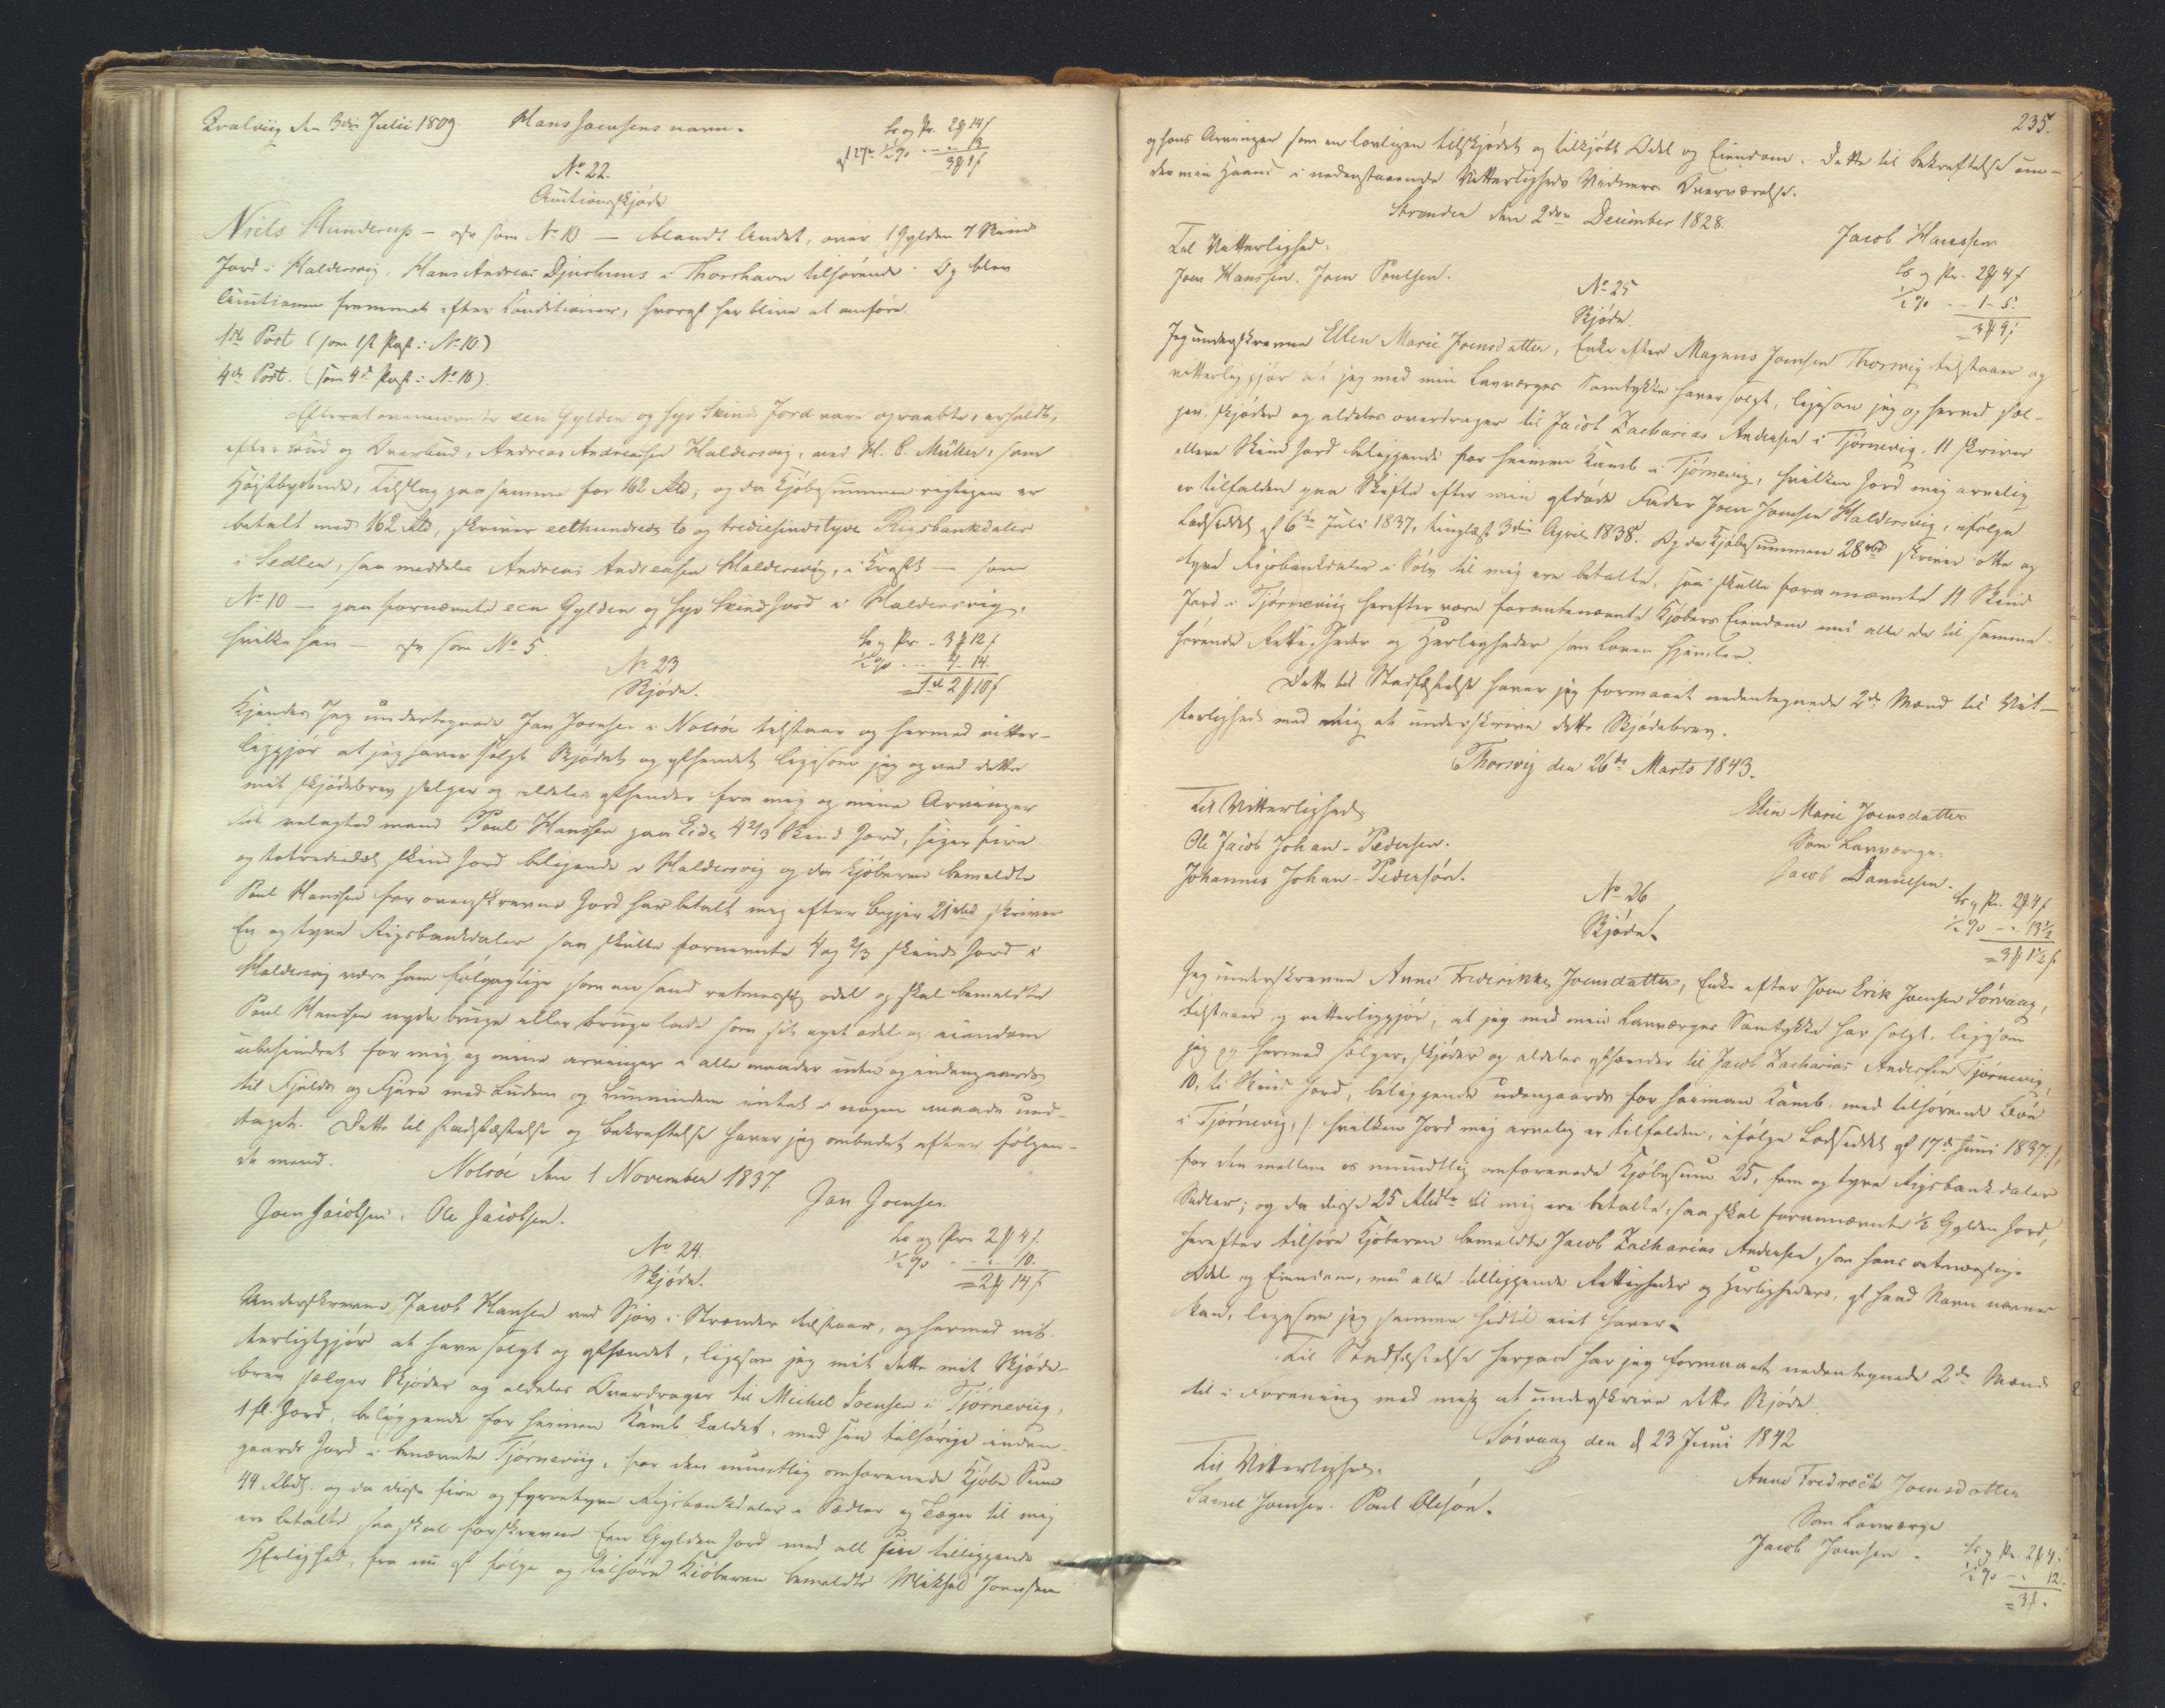 Qvalviig den 3die Julii 1809. Hans Joensens navn.
Ls og Pr. 2ʄ 14ſ
af 127 1/2 % - - „ 13
3ʄ 1ſ
No 22.
Auctionsskjøde
Niels Hunderup - osv som No 10 - blandt Andet, over 1 Gylden 7 Skind
Jord i Haldersvig, Hans Andreas Djurhuus i Thorshavn tilhørende. Og blev
Auctionen fremmet efter Conditioner, hvoraf her blive at anføre
1ste Post (som 1ste Post i No 10)
4de Post. (som 4de Post i No 10).
Efterat ovennævnte een Gylden og syv Skind Jord vare opraabte, erholdt,
efter Bud og Overbud, Andreas Andreasen Haldersvig, ved H. C. Müller, som
Højstbydende, Tilslag paa samme for 162 Rbd, og da Kjøbesummen rigtigen er
betalt med 162 Rbd, skriver eethundrede to og tredsindstyve Rigsbankdaler
i Sedler, saa meddeles Andreas Andreasen Haldersvig, i Kraft - som
No 10 - paa fornævnte een Gylden og syv Skind Jord i Haldersvig,
hvilke han - osv som No 5.
Ls og Pr. - 3ʄ 12ſ
1/2 % - - - 4 - 14.
= 1rd 2ʄ 10ſ
No 23
Skjøde.
Kjendes Jeg undertegnede Jan Joensen i Nolsöe tilstaar og hermed vitter-
liggjør at jeg haver solgt Skjødet og afhændet ligesom jeg og ved dette
mit skjødebrev selger og aldeles afhender fra mig og mine Arvinger
til velagted mand Poul Hanssen paa Eide 4 2/3 Skind Jord, siger fire
og totrediedel skind Jord beligende i Haldersvig og da kjøberen bemeldte
Poul Hanssen for ovenskrevne Jord har betalt mig efter begjær 21 rbd skriver
En og tyve Rigsbankdaler saa skulle fornevnte 4 og 2/3 skind Jord i
Haldersvig være ham følgagtige som en sand retmessig odel og skal bemeldte
Poul Hanssen nyde bruge eller bruge lade som sit eget odel og eiendom
ubehindret for mig og mine arvinger i alle maader uden og indengaards
til Fjelds og Fjære med Lunder og Lunninder intet i nogen maade und-
taget. Dette til stadfæstelse og bekræftelse haver jeg ombedet efter følgen-
de mænd.
Nolsöe den 1 November 1837
Jan Joensen
Joen Jacobsen. Ole Jacobsen.
Ls og Pr. 2ʄ 4ſ.
1/2 % - - „ 10.
= 2ʄ 14ſ
No 24.
Skjøde.
Underskrevne, Jacob Hansen ved Sjøv i Strænder tilstaar, og hermed vit-
terligtgjør at have solgt og afhændet, ligesom jeg mit dette mit Skjøde-
brev selger Skjøder og aldeles Overdrager til Michel Joensen i Tjørneviig,
1 fl. Jord, beliggende for heiman Kamb kaldet, med sin tilhørige inden-
gaards Jord i benævnte Tjørneviig, for den mundtlig omforenede Kjøbe Sum
44 Rbd. og da disse fire og fyrretyve Rigsbankdaler i Sædler og Tegn til mig
ere betalte saa skal forskrevne Een Gylden Jord med all sin tilliggende
Herlighed, fra nu af følge og tilhøre Kiøberen bemeldte Mikkel Joensen
235.
og hans Arvinger som en lovligen tilskjødet og tilkjøbt Odel og Eiendom. Dette til bekræftelse un-
der min Haand i nedenstaaende Vitterligheds Vidners Overværelse.
Strænder den 2den December 1828.
Jacob Hanssen
Til Vitterlighed.
Joen Hanssen. Joen Poulsen.
Ls og Pr. 2ʄ 4ſ
1/2 % - - 1 - 5.
3ʄ 9ſ
No 25
Skjøde.
Jeg underskrevne Ellen Marie Joensdatter, Enke efter Magnus Joensen Thorsvig tilstaaer og
vitterliggjør at jeg med min Lavværges Samtykke haver solgt, ligesom jeg og herved sæl-
ger, skjøder og aldeles overdrager til Jacob Zacharias Andersen i Tjørnevig, 11 skriver
elleve Skind Jord beliggende for heiman Kamb i Tjørnevig, hvilken Jord mig arvelig
er tilfalden paa Skifte efter min afdøde Fader Joen Joensen Haldersvig, ifølge
Lodseddel af 6te Juli 1837, tinglæst 3die April 1838. Og da Kjøbesummen 28 rbd skriver otte og
tyve Rigsbankdaler i Sølv til mig ere betalte, saa skulle forannævnte 11 Skind
Jord i Tjørneviig herefter være forommeldte Kjøbers Eiendom med alle de til samme
hørende Rettigheder og Herligheder som Loven hjemler.
Dette til Stadfæstelse haver jeg formaaet nedentegnede 2de Mænd til Vit-
terlighed med mig at underskrive dette Skjødebrev.
Thorsvig den 26de Marts 1843.
Til Vitterlighed
Ole Jacob Johan-Pedersen.
Johannes Johan-Pedersøn.
Elin Marie Joensdatter
Som Lavværge:
Jacob Danielsen.
Ls og Pr. 2ʄ 4ſ
1/2 % - - „ 13 1/2
= 3ʄ 1 1/2 ſ
No 26
Skjøde.
Jeg underskrevne Anne Frederikke Joensdatter, Enke efter Joen Erik Joensen Sørvaag,
tilstaaer og vitterliggjør, at jeg med min Lavværges Samtykke har solgt, ligesom
jeg og hermed sælger, skjøder og aldeles afhænder til Jacob Zacharias Andersen Tjørnevig
10, ti Skind Jord, beliggende udengaards for heiman Kamb, med tilhørende Bøe
i Tjørnevig, /: hvilken Jord mig arvelig er tilfalden, ifølge Lodseddel af 17de Juni 1837 :/,
for den mellem os mundtlig omforenede Kjøbesum 25, fem og tyve Rigsbankdaler
Sedler; og da disse 25 Rbdlr til mig ere betalte, saa skal forannævnte 1/2 Gylden Jord,
herefter tilhøre Kjøberen bemeldte Jacob Zacharias Andersen, som hans retmæssige
Odel og Eiendom, med alle tilliggende Rettigheder og Herligheder, af hvad Navn nævnes
kan, ligesom jeg samme hidtil eiet haver.
Til Stadfæstelse herpaa har jeg formaaet nedentegnede 2de Mænd
til i Forening med mig at underskrive dette Skjøde
Sörvaag den 23 Juni 1842
Til Vitterlighed.
Samel Joensen. Poul Olesøn.
Anne Fredrech Joensdatter
Som Lavværge
Jacob Joensen.
Ls og Pr. 2ʄ 4ſ
1/2 % - - „ 12.
= 3ʄ.